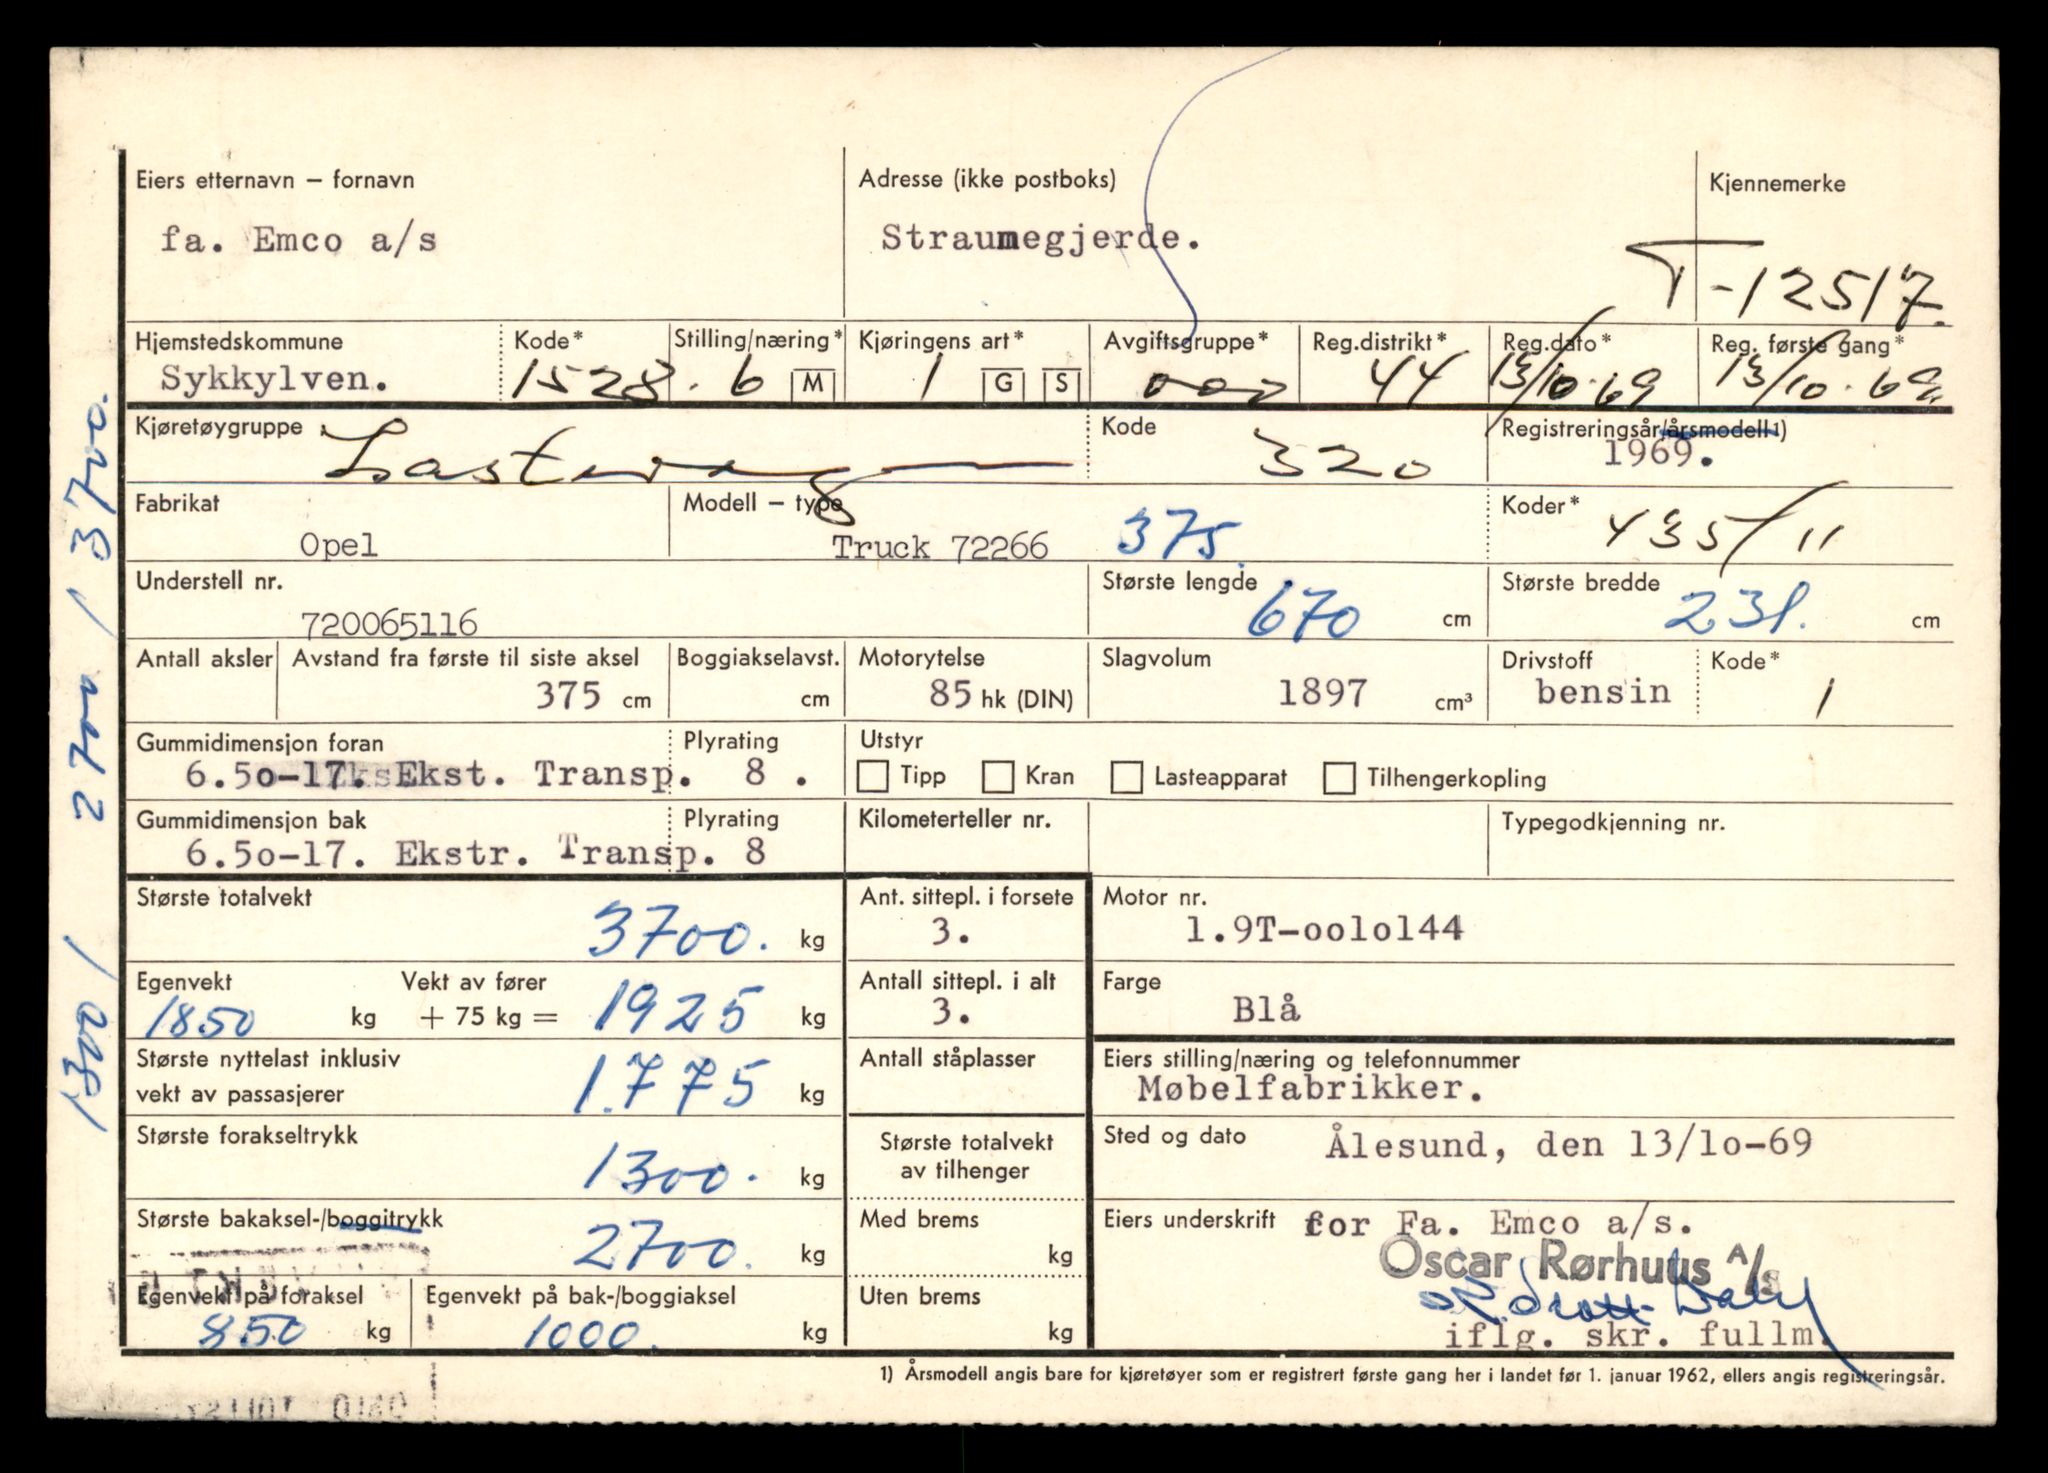 Eiers etternavn – fornavn
fa. Emco a/s
Adresse (ikke postboks)
Straumegjerde.
Kjennemerke
T-12517.
Hjemstedskommune
Sykkylven.
Kode*
1528.
Stilling/næring*
6 M
Kjøringens art*
1 G S
Avgiftsgruppe*
000
Reg.distrikt*
44
Reg.dato*
13/10.69
Reg. første gang*
13/10.69.
Kjøretøygruppe
Lastevogn
Kode
320
Registreringsår/årsmodell 1)
1969.
Fabrikat
Opel
Modell – type
Truck 72266 375.
Koder*
435/11
Understell nr.
720065116
Største lengde
670 cm
Største bredde
231. cm
Antall aksler
Avstand fra første til siste aksel
375 cm
Boggiakselavst.
cm
Motorytelse
85 hk (DIN)
Slagvolum
1897 cm³
Drivstoff
bensin
Kode*
1
Gummidimensjon foran
6.5o-17. Ekst. Transp.
Plyrating
8 .
Utstyr
Tipp Kran Lasteapparat Tilhengerkopling
Gummidimensjon bak
6.5o-17. Ekstr. Transp.
Plyrating
8
Kilometerteller nr.
Typegodkjenning nr.
Største totalvekt
3700. kg
Ant. sittepl. i forsete
3.
Motor nr.
1.9T-oolol44
Egenvekt
1850 kg
Vekt av fører
+ 75 kg = 1925 kg
Antall sittepl. i alt
3.
Farge
Blå
Største nyttelast inklusiv
vekt av passasjerer
1.775 kg
Antall ståplasser
Eiers stilling/næring og telefonnummer
Møbelfabrikker.
Største forakseltrykk
1300. kg
Største totalvekt
av tilhenger
Sted og dato
Ålesund, den 13/1o-69
Største bakaksel-/boggitrykk
2700. kg
Med brems
kg
Eiers underskrift
for Fa. Emco a/s.
Oscar Rørhuus A/s
iflg. skr. fullm.
Egenvekt på foraksel
850 kg
Egenvekt på bak-/boggiaksel
1000. kg
Uten brems
kg
1) Årsmodell angis bare for kjøretøyer som er registrert første gang her i landet før 1. januar 1962, ellers angis registreringsår.
1300 / 2700 / 3700.